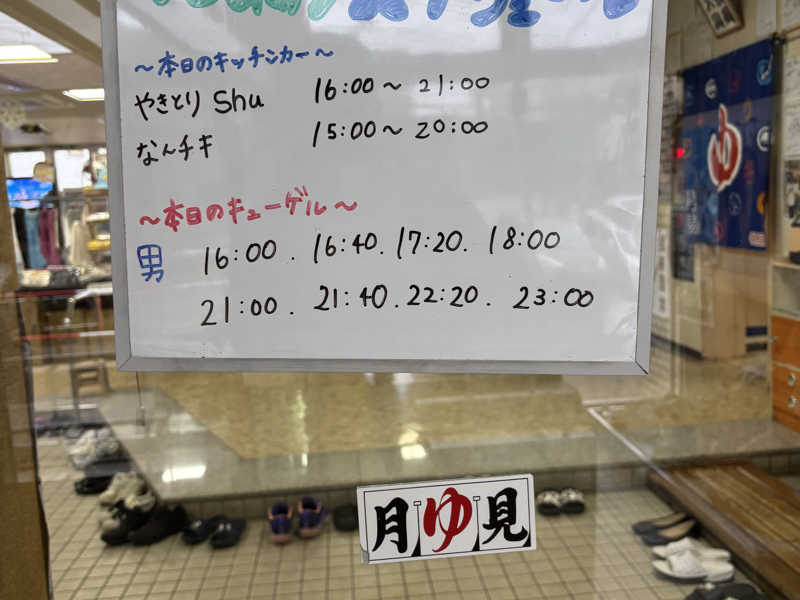 ~本日のキッチンカー~
やきとり Shu 16:00~21:00
なんチキ 15:00~20:00
~本日のキューゲル~
男 16:00. 16:40. 17:20. 18:00
21:00. 21:40. 22:20. 23:00
ゆ
月ゆ見